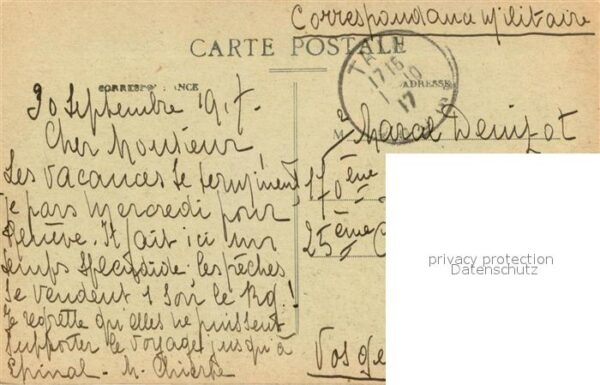 Correspondance Militaire
CARTE POSTALE
CORRESPONDANCE
ADRESSE
17 15
1 10
17
30 Septembre 1917.
Cher Monsieur
Les vacances se terminent
je pars mercredi pour
Il fait ici un
temps splendide les pêches
se vendent 1 sou le Kg!
Je regrette qu'elles ne puissent
supporter le voyage jusqu'à
Epinal - M.
M
Marcel Denizot
170ème
25ème C
Vosge
privacy protection
Datenschutz